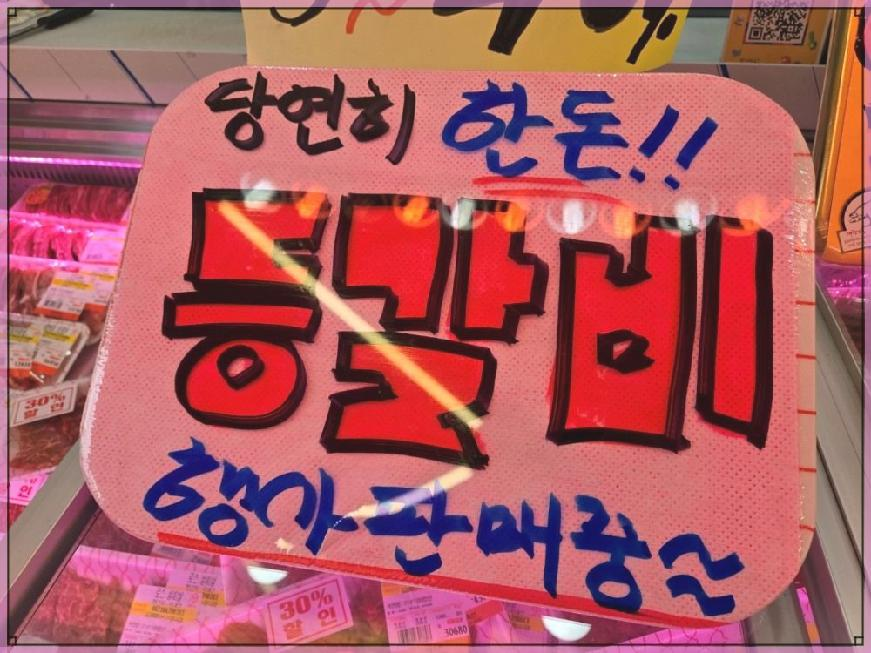 당연히 한돈!!
등갈비
행사판매중~
30%
할인
30%
할인